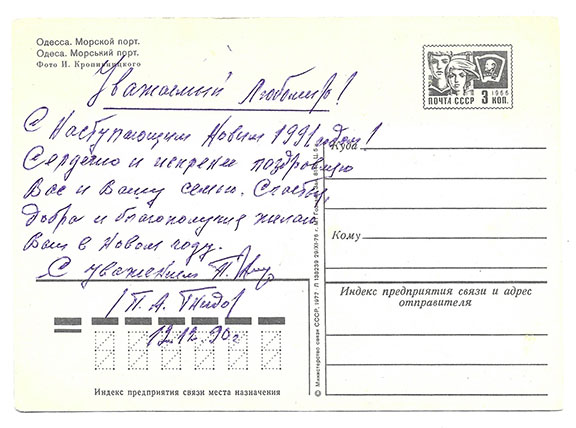 Одесса. Морской порт.
Одеса. Морський порт.
Фото И. Кропивницкого
Уважаемый Любомир!
С Наступающим Новым 1991 годом!
Сердечно и искренне поздравляю
Вас и Вашу семью. Счастья,
добра и благополучия желаю
Вам в Новом году.
С уважением
П. А. Гнидо
12.12.90г.
Индекс предприятия связи места назначения
© Министерство связи СССР, 1977
ПОЧТА СССР 3 КОП.
1966
Куда
Кому
Индекс предприятия связи и адрес
отправителя